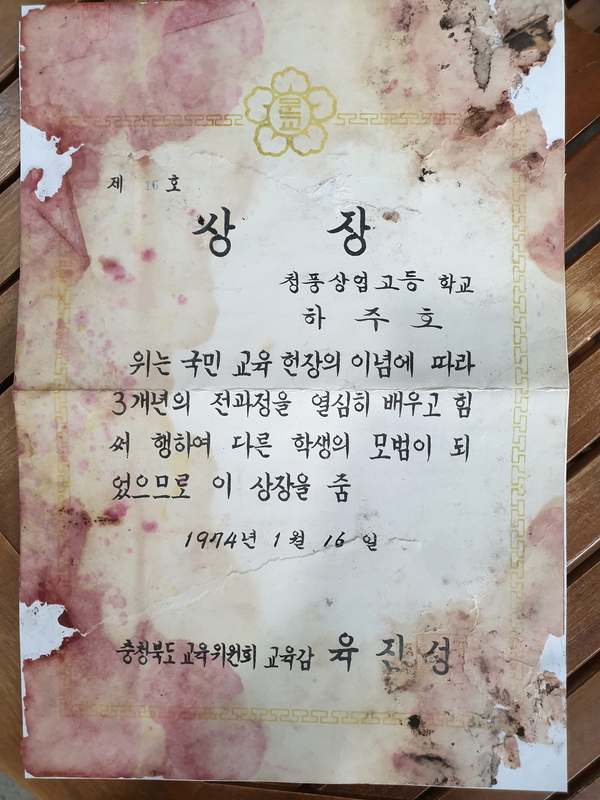 문교
제 16 호
상 장
청풍상업고등 학교
하 주 호
위는 국민 교육 헌장의 이념에 따라
3개년의 전과정을 열심히 배우고 힘
써 행하여 다른 학생의 모범이 되
었으므로 이 상장을 줌
1974년 1월 16일
충청북도 교육위원회 교육감 육 진 성